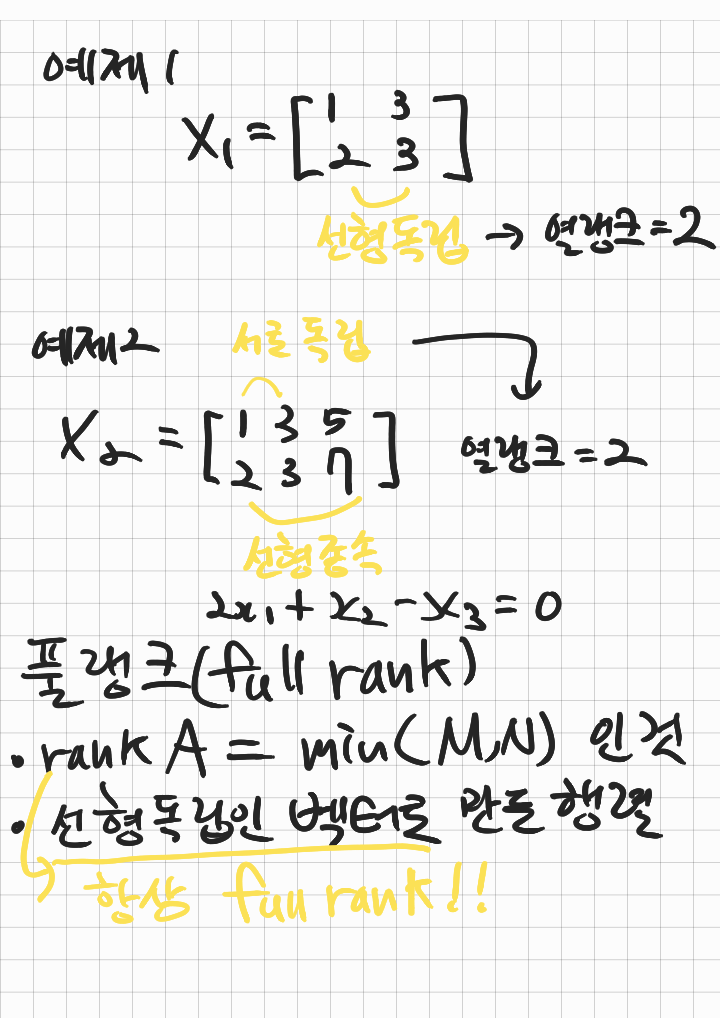 예제 1
X₁ = [1 3
2 3]
선형독립 → 열랭크 = 2
예제2 서로 독립
X₂ = [1 3 5
2 3 7]
열랭크 = 2
선형종속
2x₁ + x₂ - x₃ = 0
풀랭크(full rank)
• rank A = min(M,N) 인것
• 선형독립인 벡터로 만든 행렬
항상 full rank!!